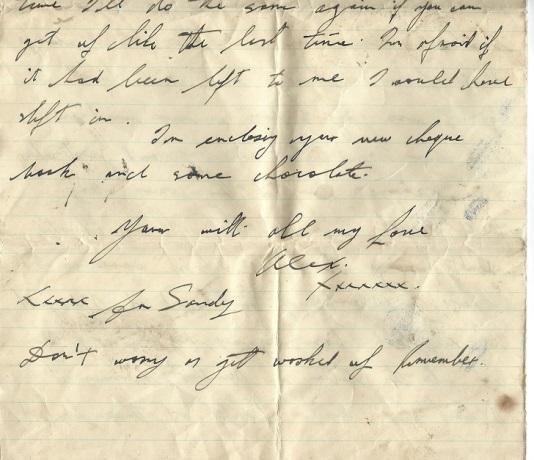 time I'll do the same again if you can
get up like the last time. I'm afraid if
it had been left to me I would have
slept in.
I'm enclosing your new cheque
book and some chocolate.
Yours with all my love
Alex.
xxxxxxx.
xxxxx for Sandy
Don't worry or get worked up Remember.